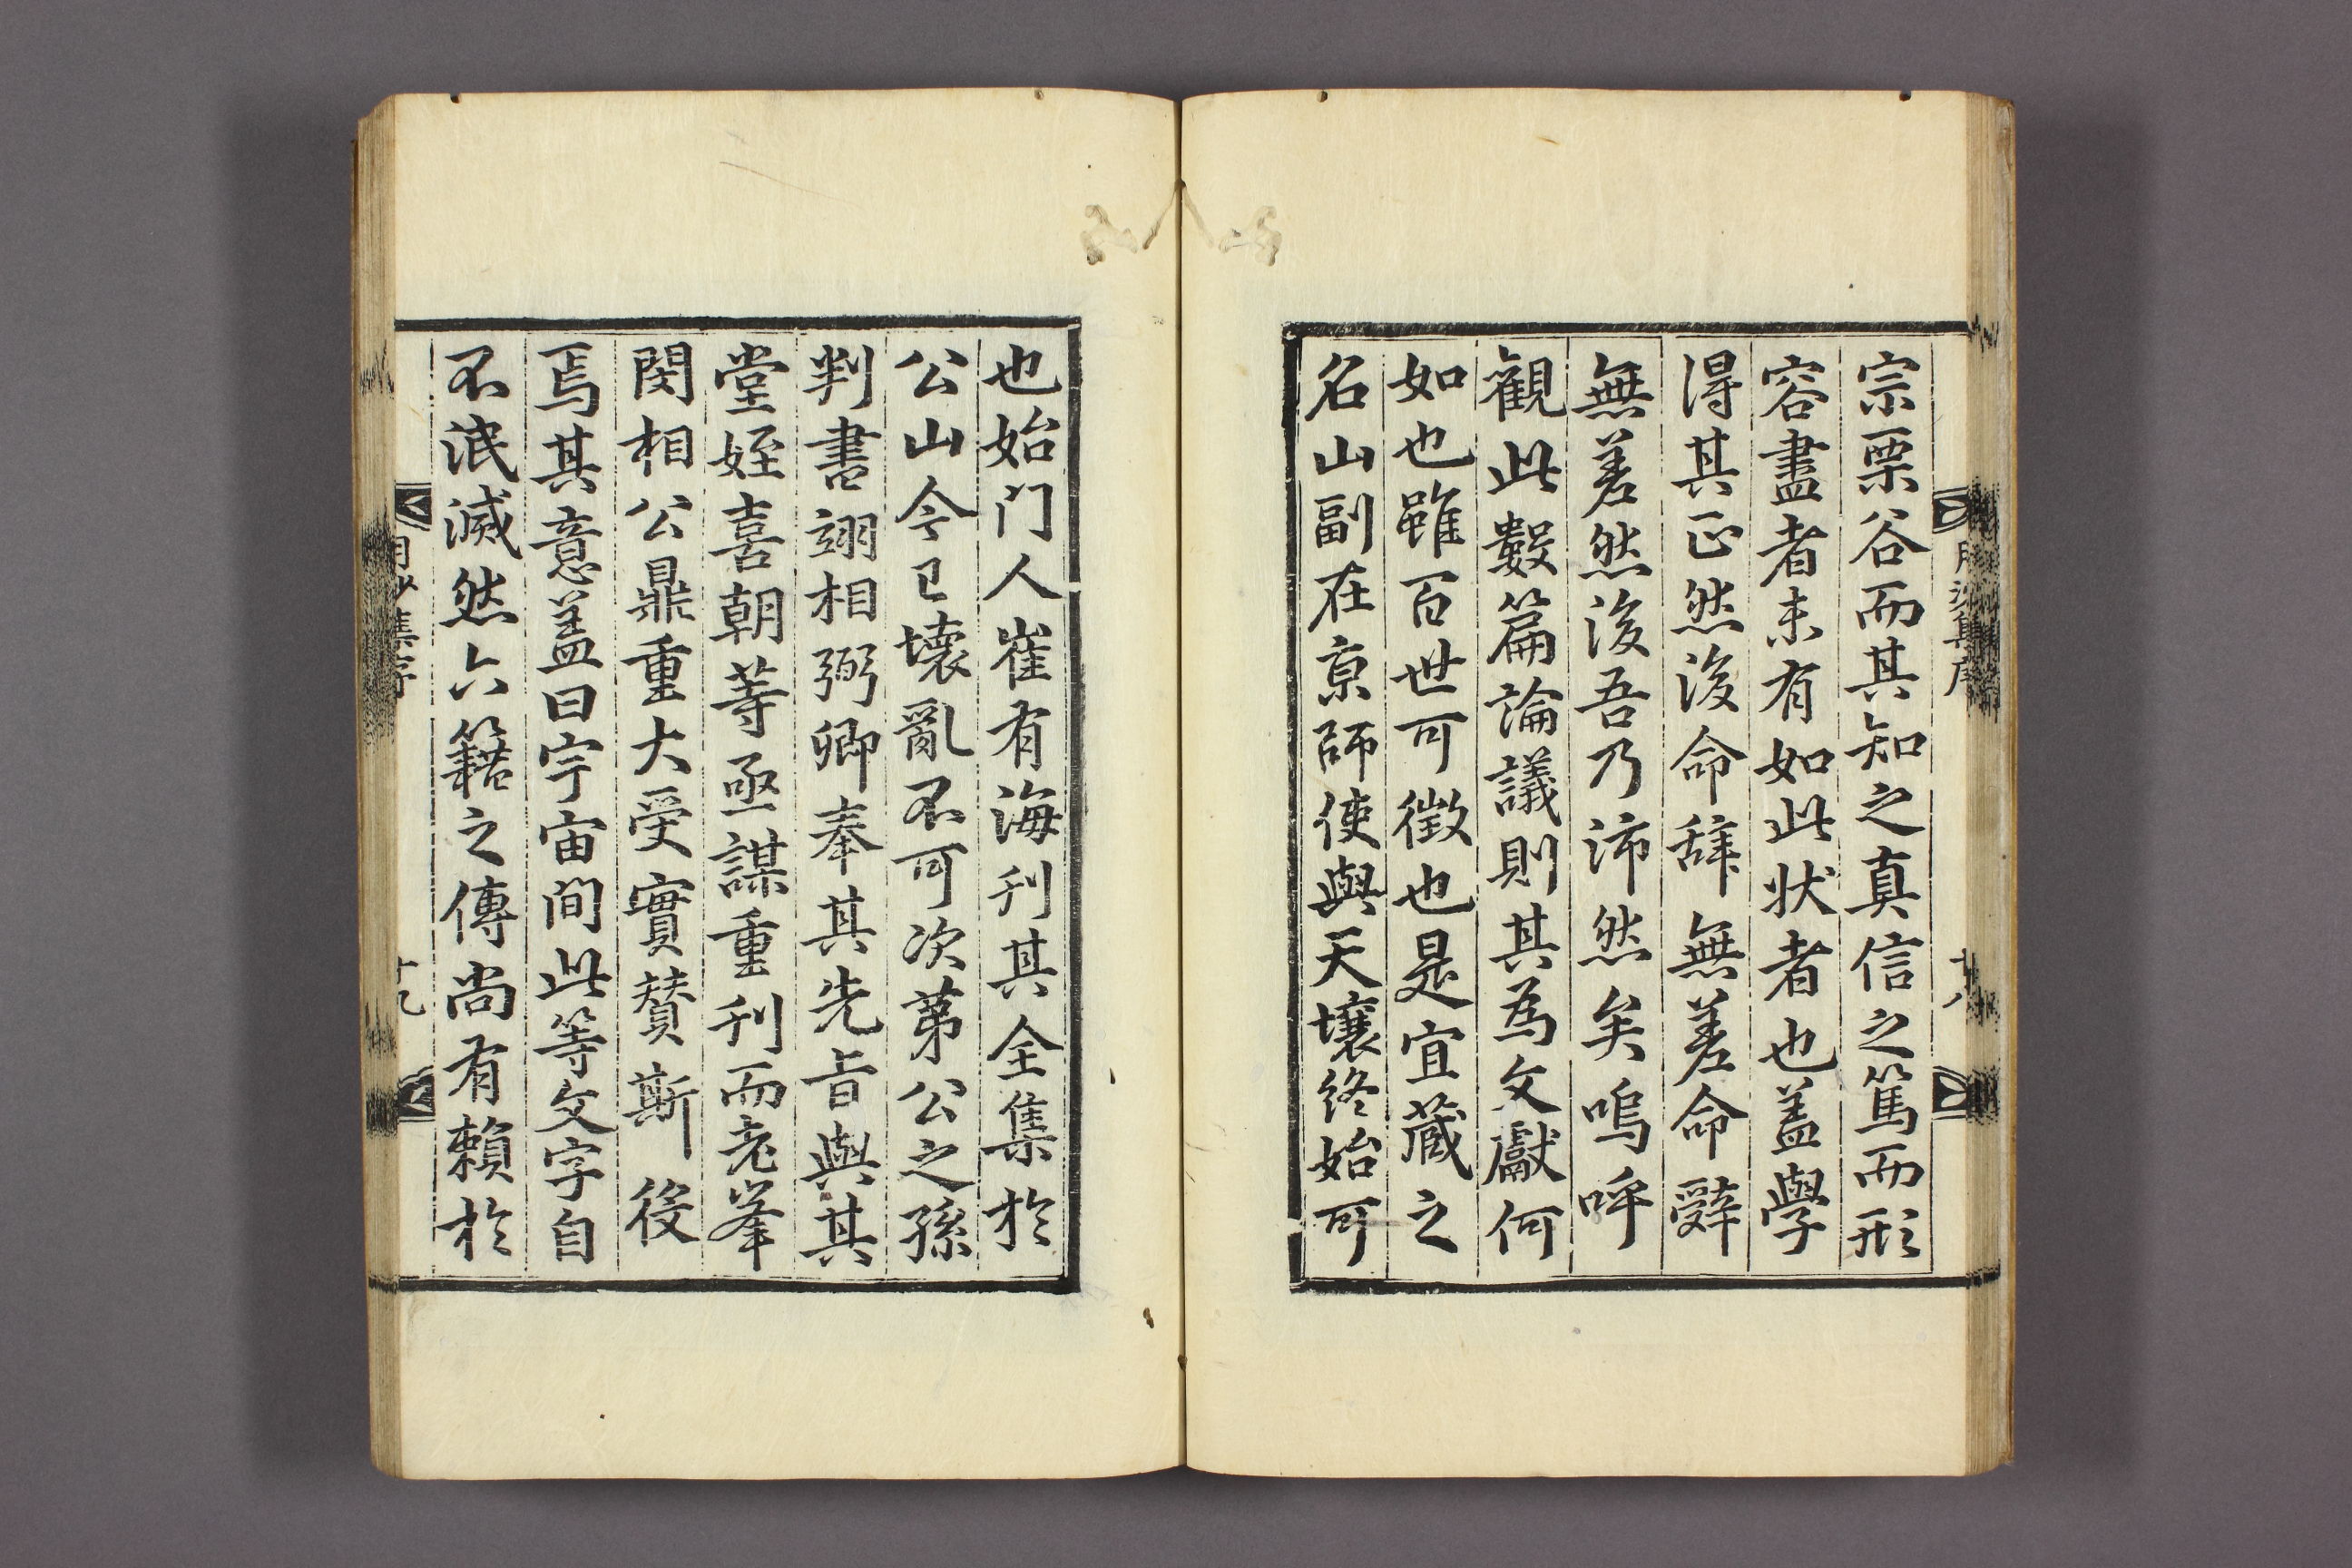 宗栗谷而其知之真信之篤而形
容盡者未有如此狀者也盖學
得其正然後命辞無差命辭
無差然後吾乃沛然矣嗚呼
觀此數篇論議則其為文獻何
如也雖百世可徵也是宜藏之
名山副在京師使與天壤終始可
也始门人崔有海刋其全集於
公山今已壞亂不可次第公之孫
判書翊相弼卿奉其先旨與其
堂姪喜朝等亟謀重刋而老峯
閔相公鼎重大受實賛斯役
焉其意盖曰宇宙間此等文字自
不泯滅然六籍之傳尚有賴於
月沙集序
十八
月沙集序
十九